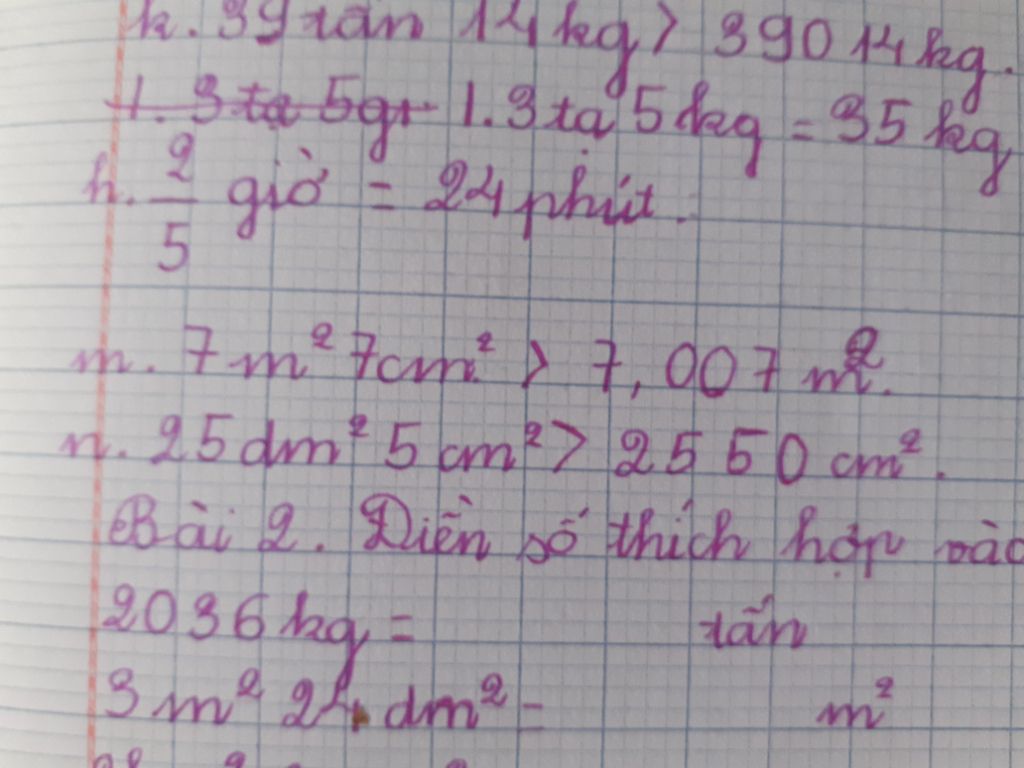 k. 39 tấn 14 kg > 39014 kg.
1. 3 tạ 5 gr 1. 3 tạ 5 kg = 35 kg
h. 2/5 giờ = 24 phút.
m. 7 m² 7cm² > 7,007 m².
n. 25 dm² 5 cm² > 2550 cm².
Bài 2. Điền số thích hợp vào
2036 kg = tấn
3 m² 24 dm² = m²